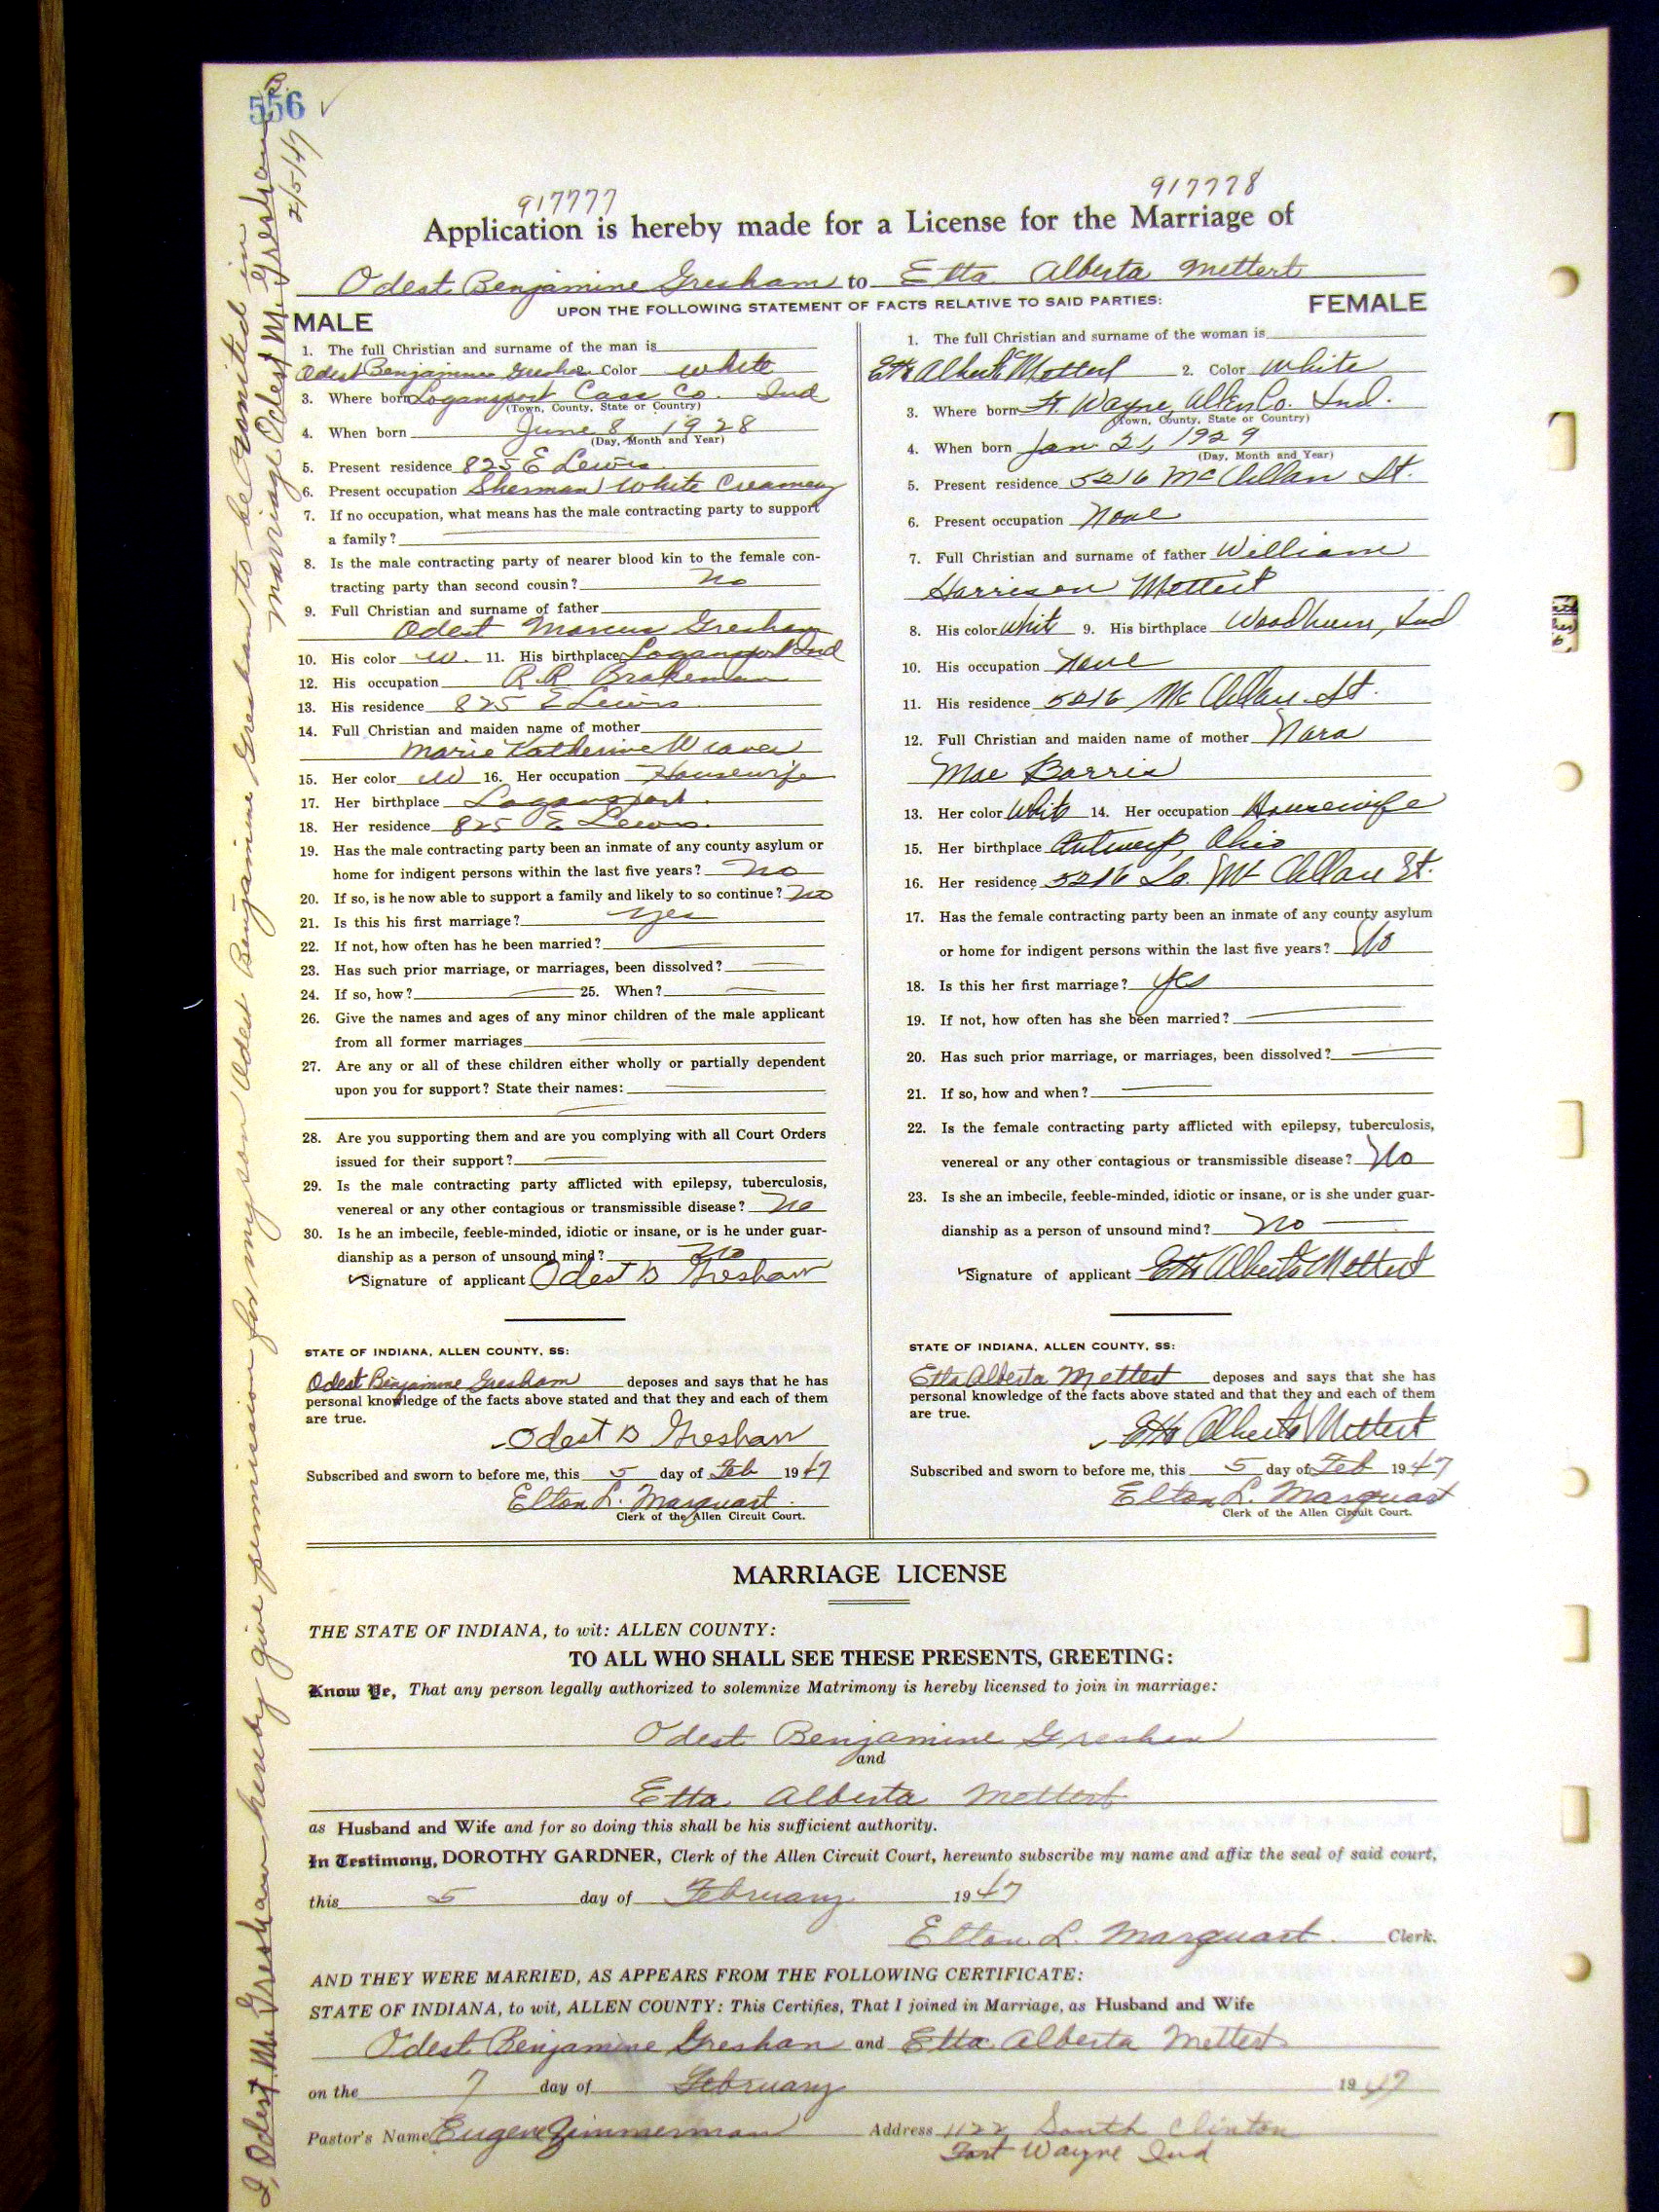 556
917777
917778
Application is hereby made for a License for the Marriage of
Odest Benjamine Gresham to Etta Alberta Mettert
UPON THE FOLLOWING STATEMENT OF FACTS RELATIVE TO SAID PARTIES:
MALE
1. The full Christian and surname of the man is
Odest Benjamine Color white
3. Where born Logansport Cass Co. Ind
(Town, County, State or Country)
4. When born June 8 1928
(Day, Month and Year)
5. Present residence 825 E Lewis
6. Present occupation Sherman White Creamery
7. If no occupation, what means has the male contracting party to support
a family?
8. Is the male contracting party of nearer blood kin to the female con-
tracting party than second cousin? no
9. Full Christian and surname of father
Odest Marcus Gresham
10. His color W. 11. His birthplace Logansport Ind
12. His occupation R.R Brakeman
13. His residence 825 E Lewis
14. Full Christian and maiden name of mother
Marie Katherine Weaver
15. Her color W 16. Her occupation Housewife
17. Her birthplace Logansport.
18. Her residence 825 E Lewis.
19. Has the male contracting party been an inmate of any county asylum or
home for indigent persons within the last five years? no
20. If so, is he now able to support a family and likely to so continue? no
21. Is this his first marriage? yes
22. If not, how often has he been married?
23. Has such prior marriage, or marriages, been dissolved?
24. If so, how? 25. When?
26. Give the names and ages of any minor children of the male applicant
from all former marriages
27. Are any or all of these children either wholly or partially dependent
upon you for support? State their names:
28. Are you supporting them and are you complying with all Court Orders
issued for their support?
29. Is the male contracting party afflicted with epilepsy, tuberculosis,
venereal or any other contagious or transmissible disease? no
30. Is he an imbecile, feeble-minded, idiotic or insane, or is he under guar-
dianship as a person of unsound mind? no
Signature of applicant Odest B Gresham
STATE OF INDIANA, ALLEN COUNTY, SS:
Odest Benjamine Gresham deposes and says that he has
personal knowledge of the facts above stated and that they and each of them
are true.
Odest B Gresham
Subscribed and sworn to before me, this 5 day of Feb 1947
Elton L. Marquart.
Clerk of the Allen Circuit Court.
FEMALE
1. The full Christian and surname of the woman is
Etta Alberta Mettert 2. Color White
3. Where born Ft. Wayne, Allen Co. Ind.
(Town, County, State or Country)
4. When born Jan 21, 1929
(Day, Month and Year)
5. Present residence 5216 McClellan St.
6. Present occupation None
7. Full Christian and surname of father William
Harrison Mettert
8. His color White 9. His birthplace Woodburn, Ind
10. His occupation None
11. His residence 5216 McClellan St.
12. Full Christian and maiden name of mother Nora
Mae Barris
13. Her color White 14. Her occupation Housewife
15. Her birthplace Antwerp, Ohio
16. Her residence 5216 So. McClellan St.
17. Has the female contracting party been an inmate of any county asylum
or home for indigent persons within the last five years? No
18. Is this her first marriage? yes
19. If not, how often has she been married?
20. Has such prior marriage, or marriages, been dissolved?
21. If so, how and when?
22. Is the female contracting party afflicted with epilepsy, tuberculosis,
venereal or any other contagious or transmissible disease? No
23. Is she an imbecile, feeble-minded, idiotic or insane, or is she under guar-
dianship as a person of unsound mind? no
Signature of applicant Etta Alberta Mettert
STATE OF INDIANA, ALLEN COUNTY, SS:
Etta Alberta Mettert deposes and says that she has
personal knowledge of the facts above stated and that they and each of them
are true.
Etta Alberta Mettert
Subscribed and sworn to before me, this 5 day of Feb 1947
Elton L. Marquart
Clerk of the Allen Circuit Court.
MARRIAGE LICENSE
THE STATE OF INDIANA, to wit: ALLEN COUNTY:
TO ALL WHO SHALL SEE THESE PRESENTS, GREETING:
Know Ye, That any person legally authorized to solemnize Matrimony is hereby licensed to join in marriage:
Odest Benjamine Gresham
and
Etta Alberta Mettert
as Husband and Wife and for so doing this shall be his sufficient authority.
In Testimony, DOROTHY GARDNER, Clerk of the Allen Circuit Court, hereunto subscribe my name and affix the seal of said court,
this 5 day of February 1947
Elton L. Marquart. Clerk.
AND THEY WERE MARRIED, AS APPEARS FROM THE FOLLOWING CERTIFICATE:
STATE OF INDIANA, to wit, ALLEN COUNTY: This Certifies, That I joined in Marriage, as Husband and Wife
Odest Benjamine Greshan and Etta Alberta Mettert
on the 7 day of February 1947
Pastor's Name Eugene Zimmerman Address 1122 South Clinton
Fort Wayne Ind
I, Odest M. Gresham hereby give permission for my son Odest Benjamine Gresham to be united in
marriage Odest M. Gresham
2/5/47